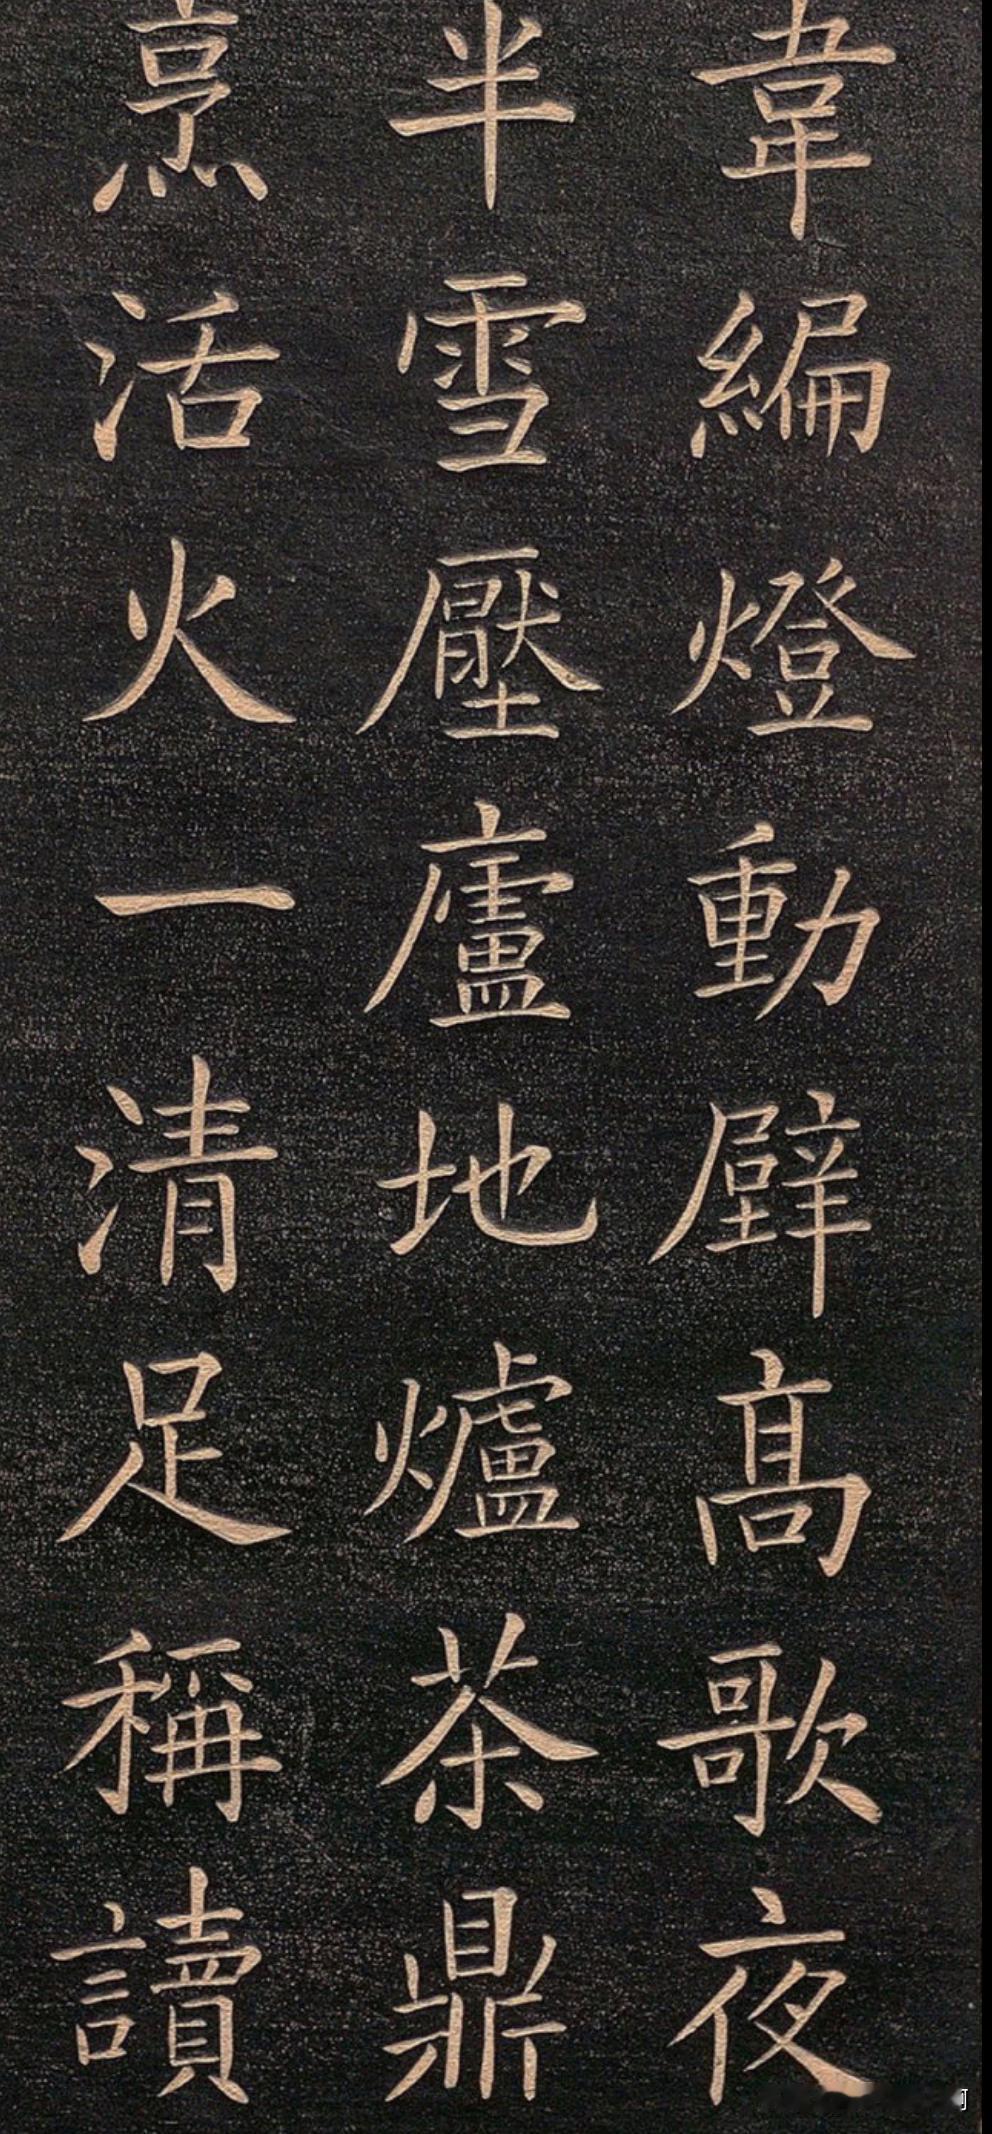 韋編燈動壁高歌夜
半雪壓廬地爐茶鼎
烹活火一清足稱讀